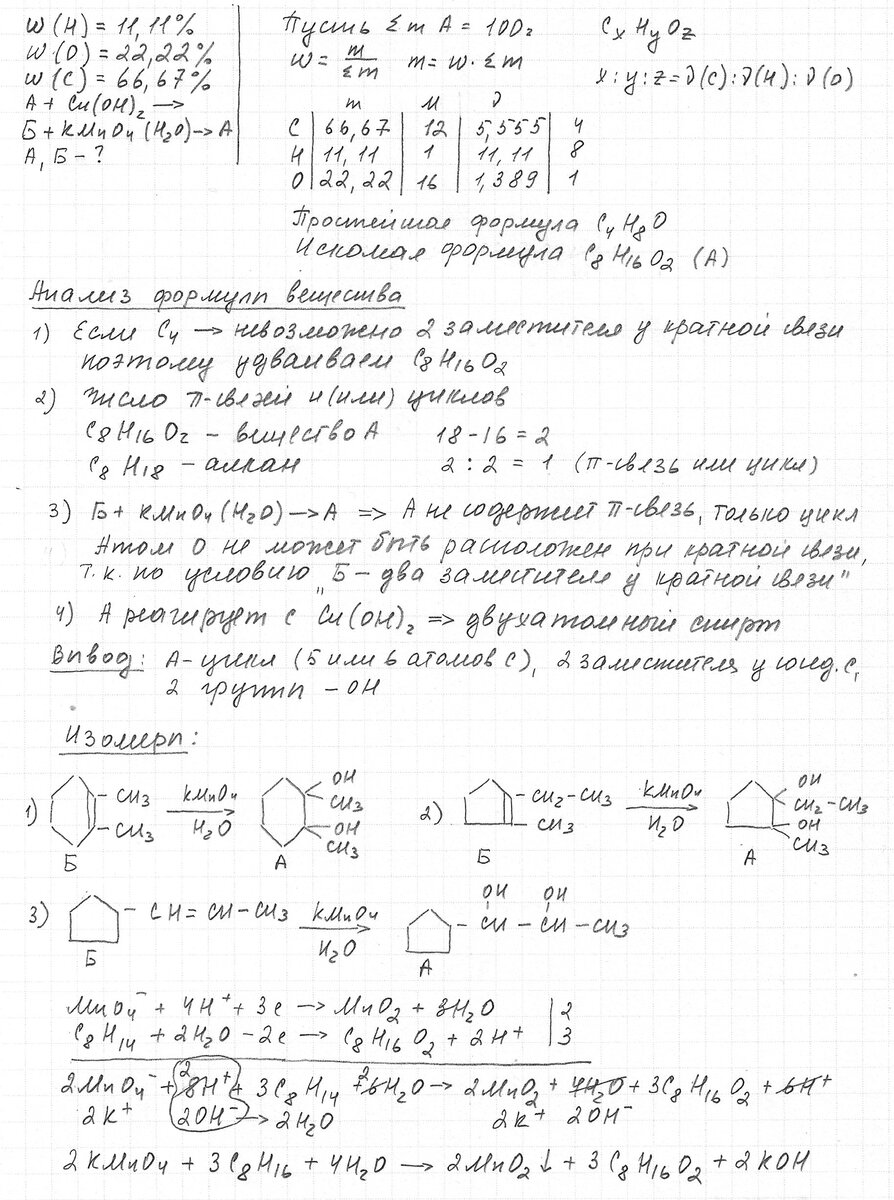 w(H) = 11,11% Пусть Σm A = 100г CxHyOz
w(O) = 22,22% w = m/Σm m = w · Σm
w(C) = 66,67% x : y : z = ν(C) : ν(H) : ν(O)
A + Cu(OH)₂ →
Б + KMnO₄ (H₂O) → A
А, Б – ?
m M ν
C | 66,67 | 12 | 5,555 | 4
H | 11,11 | 1 | 11,11 | 8
O | 22,22 | 16 | 1,389 | 1
Простейшая формула C₄H₈O
Искомая формула C₈H₁₆O₂ (A)
Анализ формулы вещества
1) Если C₄ → невозможно 2 заместителя у кратной связи
поэтому удваиваем C₈H₁₆O₂
2) Число π-связей и (или) циклов
C₈H₁₆O₂ – вещество А 18 - 16 = 2
C₈H₁₈ – алкан 2 : 2 = 1 (π-связь или цикл)
3) Б + KMnO₄ (H₂O) → A => А не содержит π-связь, только цикл
Атом O не может быть расположен при кратной связи,
т.к. по условию „Б – два заместителя у кратной связи"
4) А реагирует с Cu(OH)₂ => двухатомный спирт
Вывод: А – цикл (5 или 6 атомов C), 2 заместителя у
2 групп – OH
Изомеры:
1) CH₃ CH₃ Б KMnO₄ → H₂O OH CH₃ OH CH₃ А
2) CH₂–CH₃ CH₃ Б KMnO₄ → H₂O OH CH₂–CH₃ OH CH₃ А
3) – CH = CH – CH₃ Б KMnO₄ → H₂O OH OH – CH – CH – CH₃ А
MnO₄⁻ + 4H⁺ + 3e → MnO₂ + 3H₂O | 2
C₈H₁₄ + 2H₂O – 2e → C₈H₁₆O₂ + 2H⁺ | 3
2MnO₄⁻ + 2 8H⁺ + 3C₈H₁₄ + 2 6H₂O → 2MnO₂ + 4H₂O + 3C₈H₁₆O₂ + 6H⁺
2K⁺ 2OH⁻ → 2H₂O 2K⁺ 2OH⁻
2KMnO₄ + 3C₈H₁₆ + 4H₂O → 2MnO₂↓ + 3C₈H₁₆O₂ + 2KOH